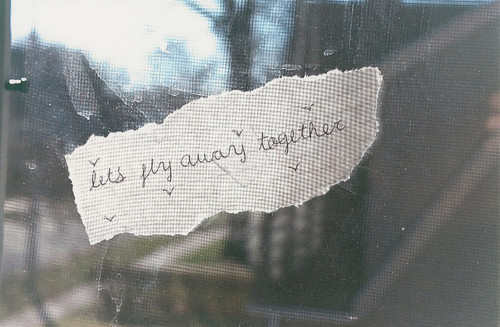 lets fly away together